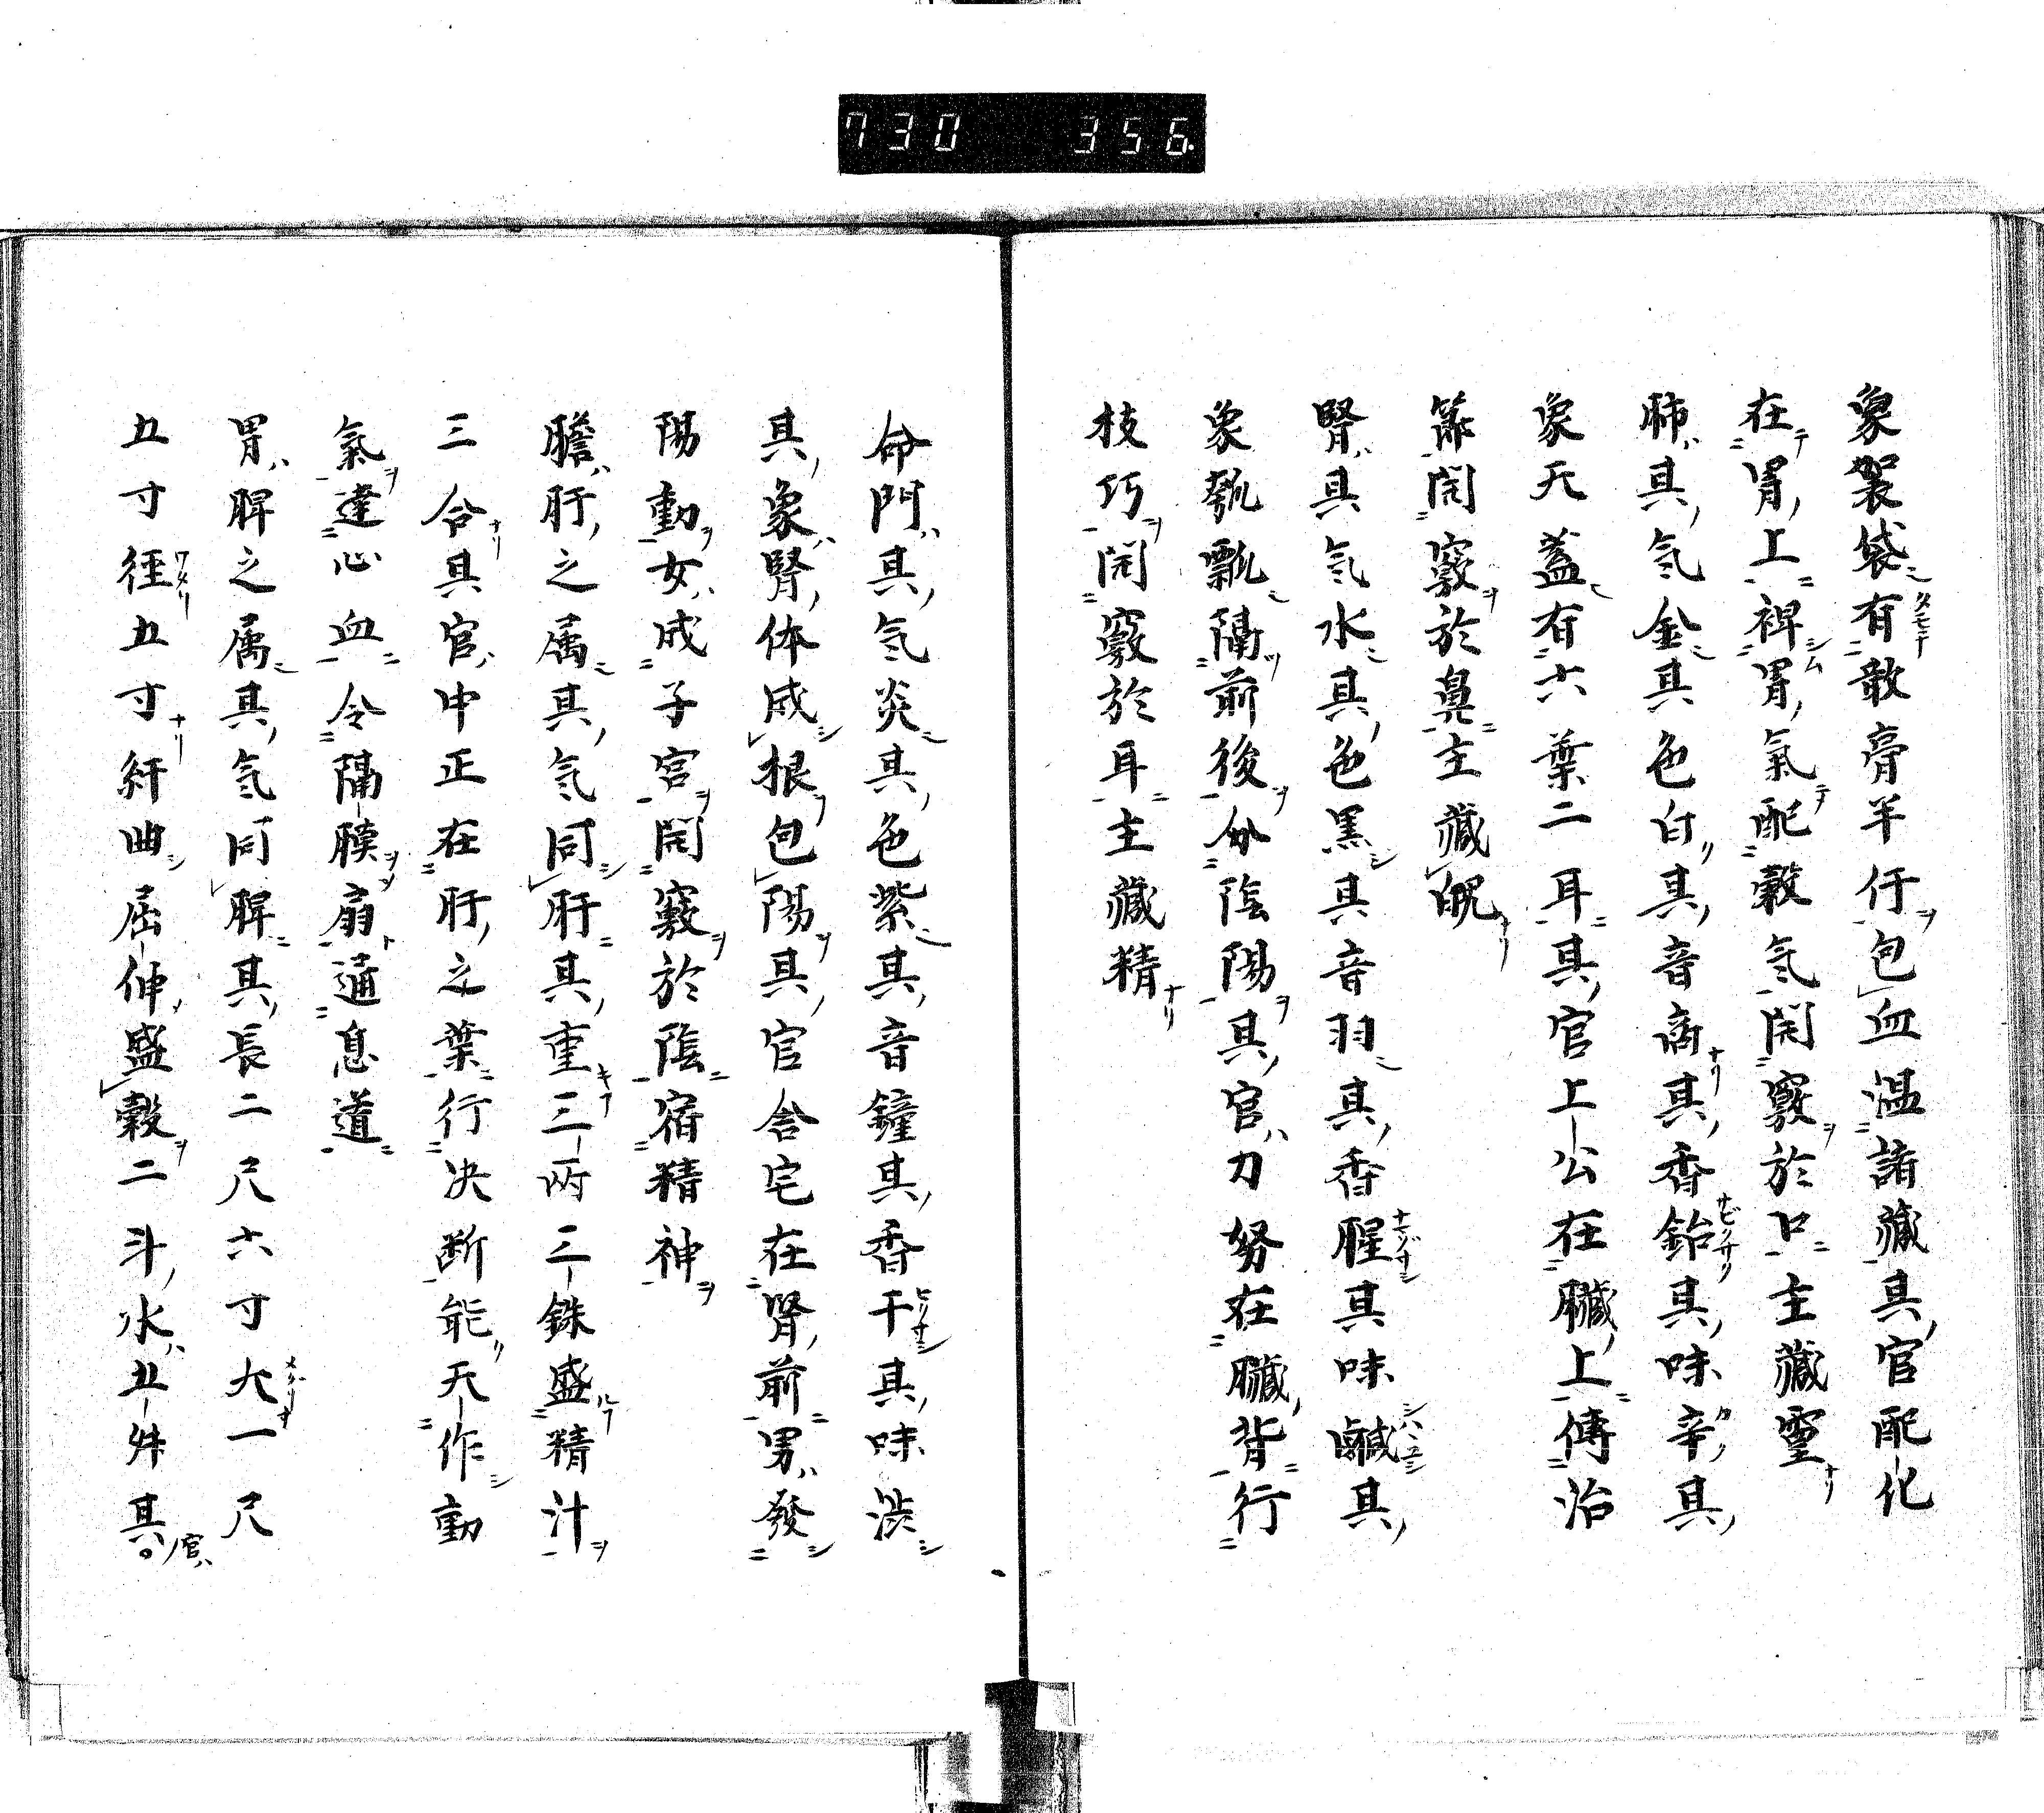 730 356
象袈袋有散膏半仟包血温諸藏其官配化
在胃上裨胃氣配穀気開竅於口主藏霊
肺其気金其色白其音商其香鉛其味辛其
象天蓋有六葉二耳其官上公在臓上傳治
節開竅於鼻主藏魄
腎其気水其色黒其音羽其香腥其味鹹其
象瓠瓢隔前後分陰陽其官力努在臓背行
枝巧開竅於耳主藏精
命門其気炎其色紫其音鐘其香干其味渋
其象腎体成根包陽其官合宅在腎前男發
陽動女成子宮開竅於陰宿精神
膽肝之属其気同肝其重三両三銖盛精汁
三合其官中正在肝之葉行决断能天作動
氣達心血令隔膜扇通息道
胃脾之属其気同脾其長二尺六寸大一尺
五寸径五寸紆曲屈伸盛穀二斗水五舛其官